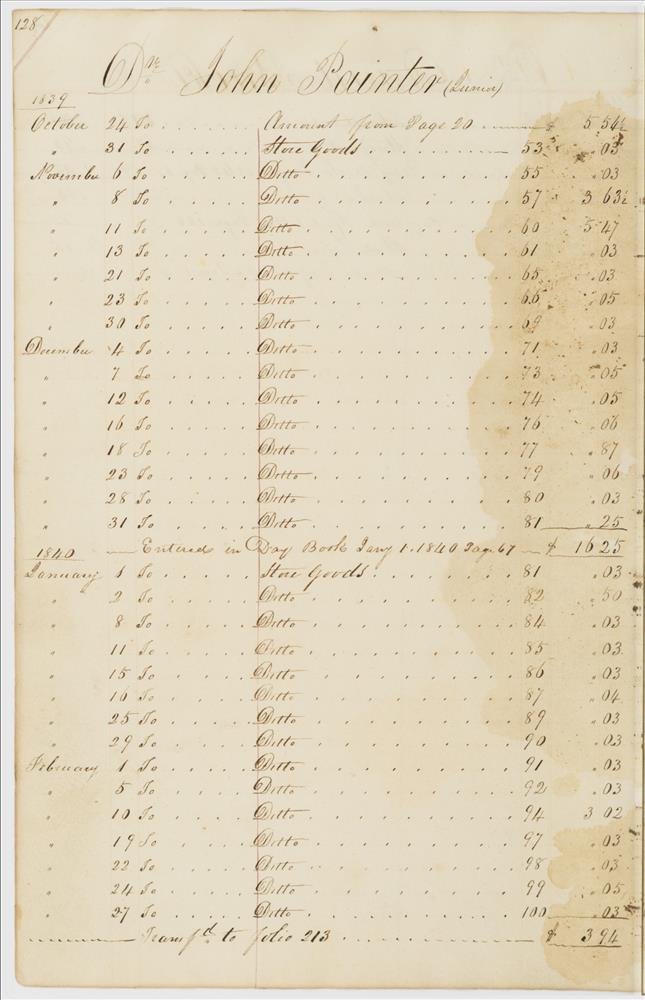 128
Dr. John Painter (Junior)
1839
October 24 To . . . . . . . Amount from Page 20 $ 5 54½
" 31 To . . . . . . Store Goods . . . . . . . . 53 " 03
November 6 To . . . . . . Ditto . . . . . . . . . . 55 " 03
" 8 To . . . . . . Ditto . . . . . . . . . . 57 3 63½
" 11 To . . . . . . Ditto . . . . . . . . . . 60 5 47
" 13 To . . . . . . Ditto . . . . . . . . . . 61 " 03
" 21 To . . . . . . Ditto . . . . . . . . . . 65 " 03
" 23 To . . . . . . Ditto . . . . . . . . . . 66 " 05
" 30 To . . . . . . Ditto . . . . . . . . . . 69 " 03
December 4 To . . . . . . Ditto . . . . . . . . . . 71 " 03
" 7 To . . . . . . Ditto . . . . . . . . . . 73 " 05
" 12 To . . . . . . Ditto . . . . . . . . . . 74 " 05
" 16 To . . . . . . Ditto . . . . . . . . . . 76 " 06
" 18 To . . . . . . Ditto . . . . . . . . . . 77 " 87
" 23 To . . . . . . Ditto . . . . . . . . . . 79 " 06
" 28 To . . . . . . Ditto . . . . . . . . . . 80 " 03
" 31 To . . . . . . Ditto . . . . . . . . . . 81 " 25
1840 Entered in Day Book Jany 1. 1840 Page 67 $ 16 25
January 1 To . . . . . . Store Goods . . . . . . . . 81 " 03
" 2 To . . . . . . Ditto . . . . . . . . . . 82 " 50
" 8 To . . . . . . Ditto . . . . . . . . . . 84 " 03
" 11 To . . . . . . Ditto . . . . . . . . . . 85 " 03
" 15 To . . . . . . Ditto . . . . . . . . . . 86 " 03
" 16 To . . . . . . Ditto . . . . . . . . . . 87 " 04
" 25 To . . . . . . Ditto . . . . . . . . . . 89 " 03
" 29 To . . . . . . Ditto . . . . . . . . . . 90 " 03
February 1 To . . . . . . Ditto . . . . . . . . . . 91 " 03
" 5 To . . . . . . Ditto . . . . . . . . . . 92 " 03
" 10 To . . . . . . Ditto . . . . . . . . . . 94 3 02
" 19 To . . . . . . Ditto . . . . . . . . . . 97 " 03
" 22 To . . . . . . Ditto . . . . . . . . . . 98 " 03
" 24 To . . . . . . Ditto . . . . . . . . . . 99 " 05
" 27 To . . . . . . Ditto . . . . . . . . . . 100 " 03
Transfd to folio 213 . . . . . . . . . . $ 3 94